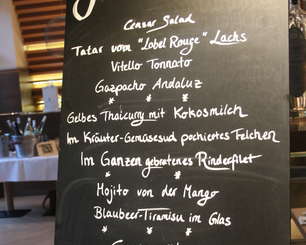 Censar Salad
Tatar vom "Label Rouge" Lachs
Vitello Tonnato
Gazpacho Andaluz
* * *
Gelbes Thaicurry mit Kokosmilch
Im Kräuter-Gemüsesud pochiertes Felchen
Im Ganzen gebratenes Rinderfilet
* * *
Mojito von der Mango
Blaubeer-Tiramisu im Glas